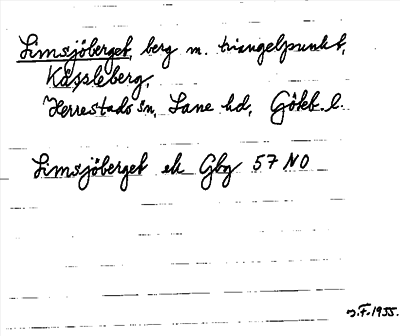 Limsjöberget, berg m. triangelpunkt,
Kässleberg,
Herrestads sn, Lane hd, Göteb. l.
Limsjöberget ek Gbg 57 NO
J.F. 1955.